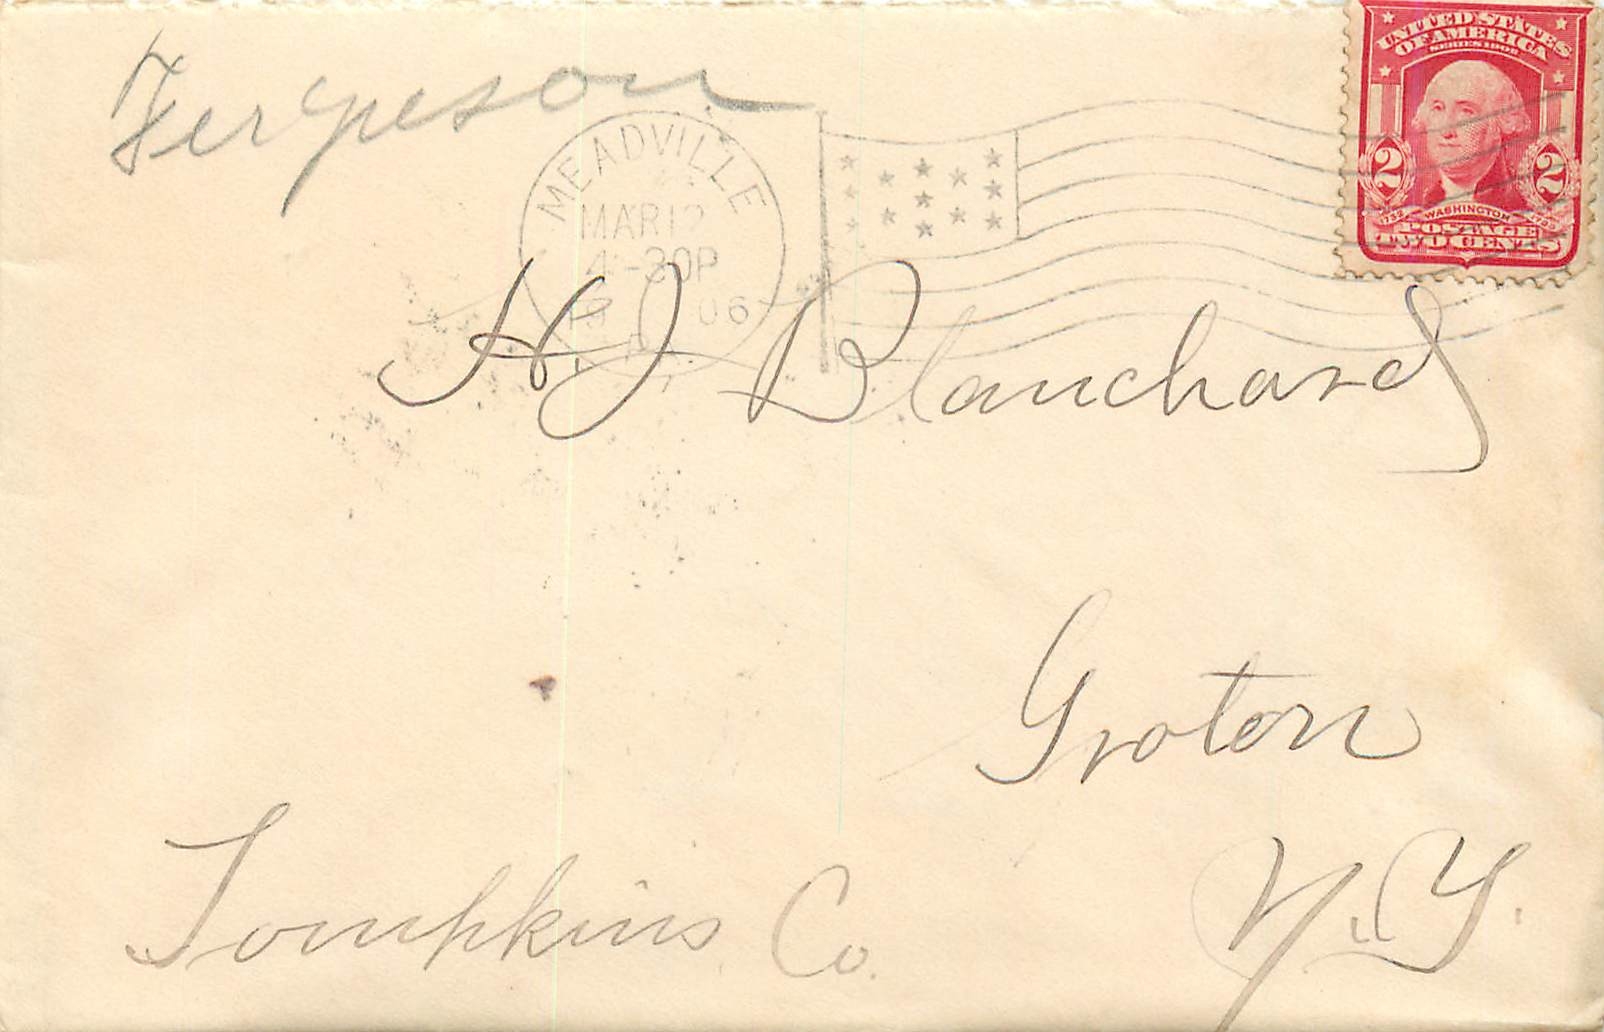 Ferguson
UNITED STATES
OF AMERICA
SERIES 1902
2 2
1732 WASHINGTON 1799
POSTAGE
TWO CENTS
MEADVILLE
MAR 12
4-30P
1906
PA.
H J Blanchard
Groton
Tompkins Co.
N.Y.